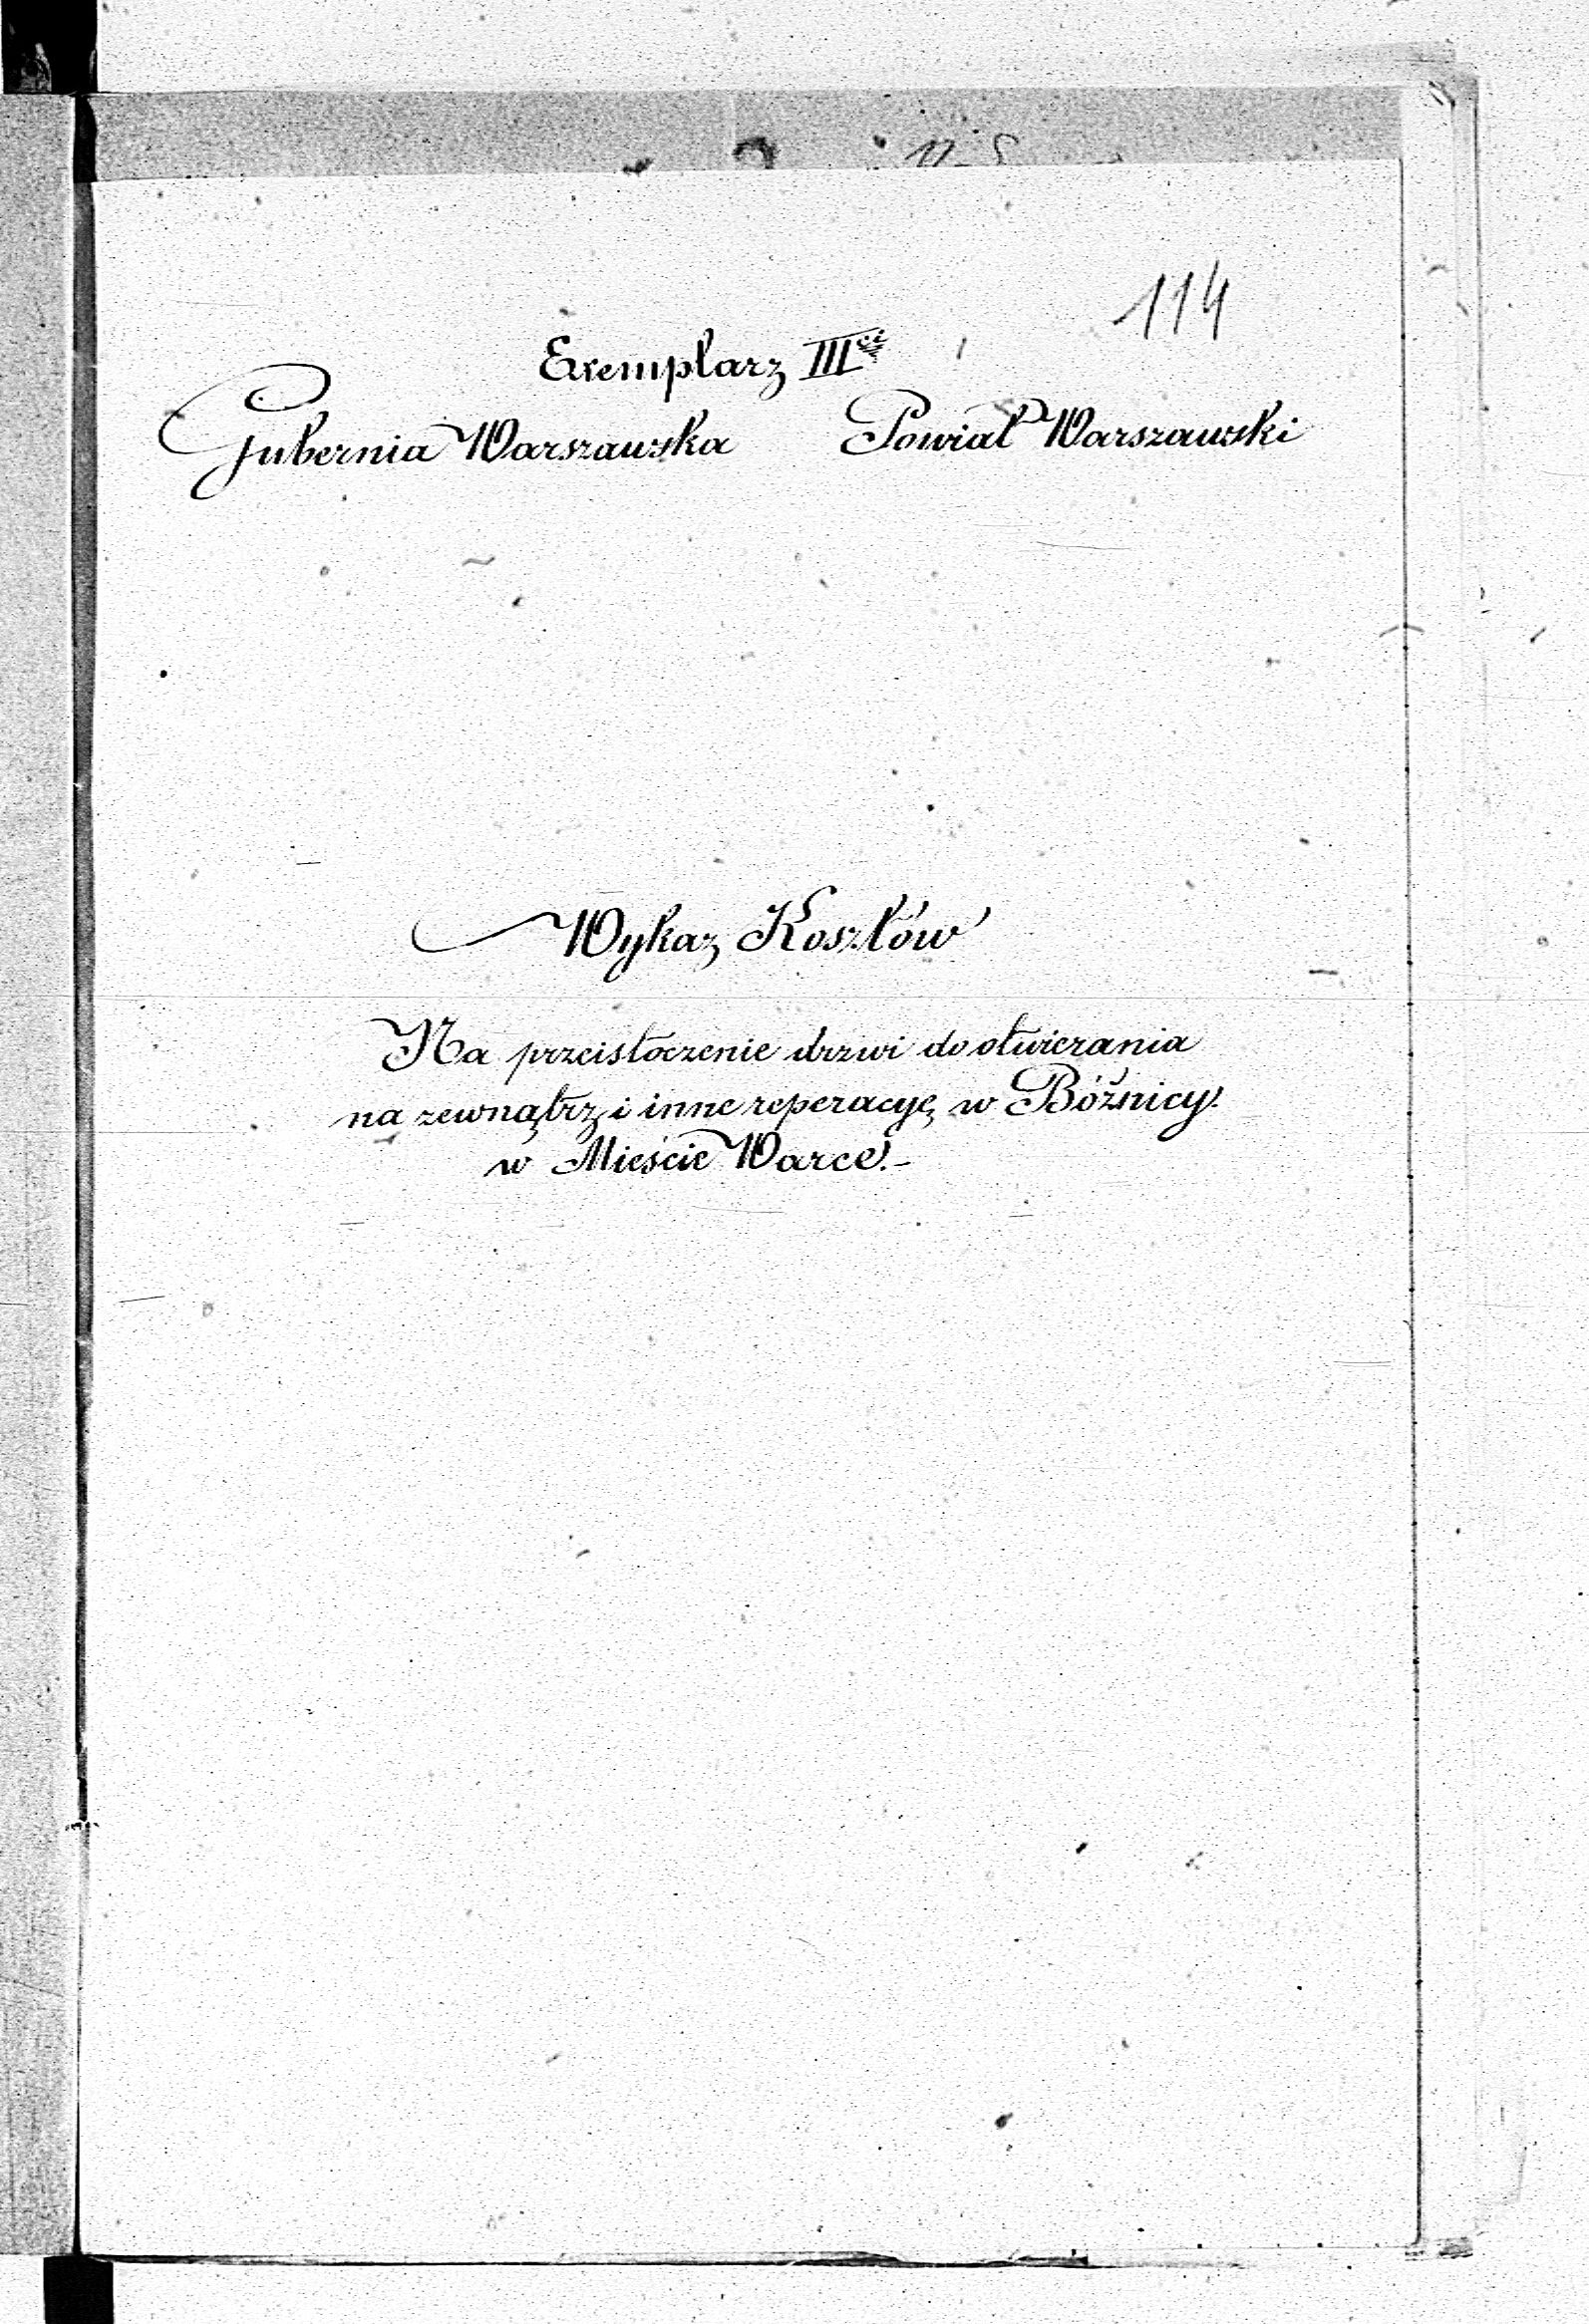 114
Exemplarz III<sup>ci</sup>
Gubernia Warszawska Powiat Warszawski
Wykaz Kosztów
Na przeistoczenie drzwi do otwierania
na zewnątrz i inne reperacyę w Bóżnicy.
w Mieście Warce.-